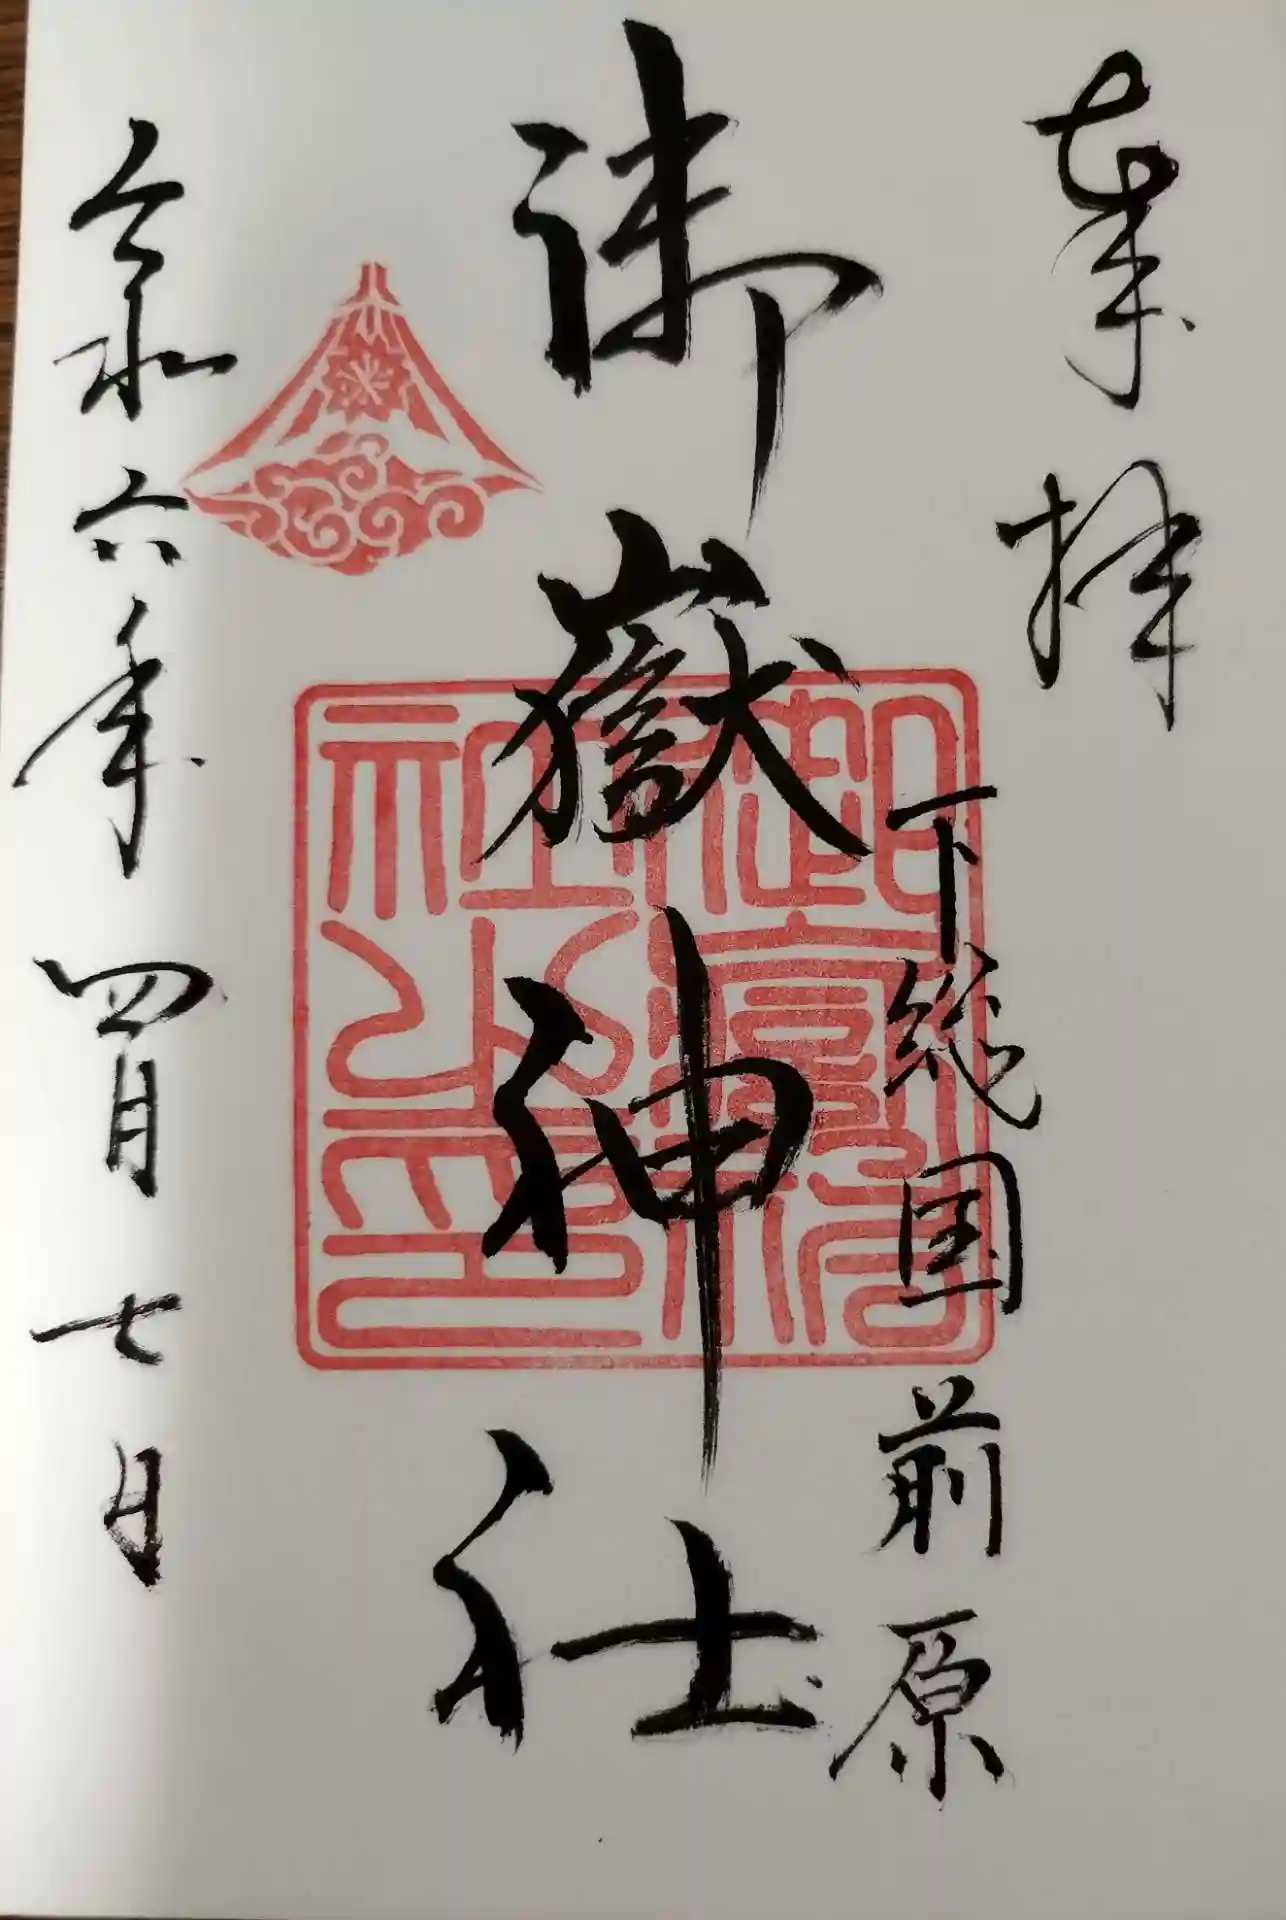 奉拝
下総国前原
御嶽神社
令和六年四月七日
御嶽神社之印